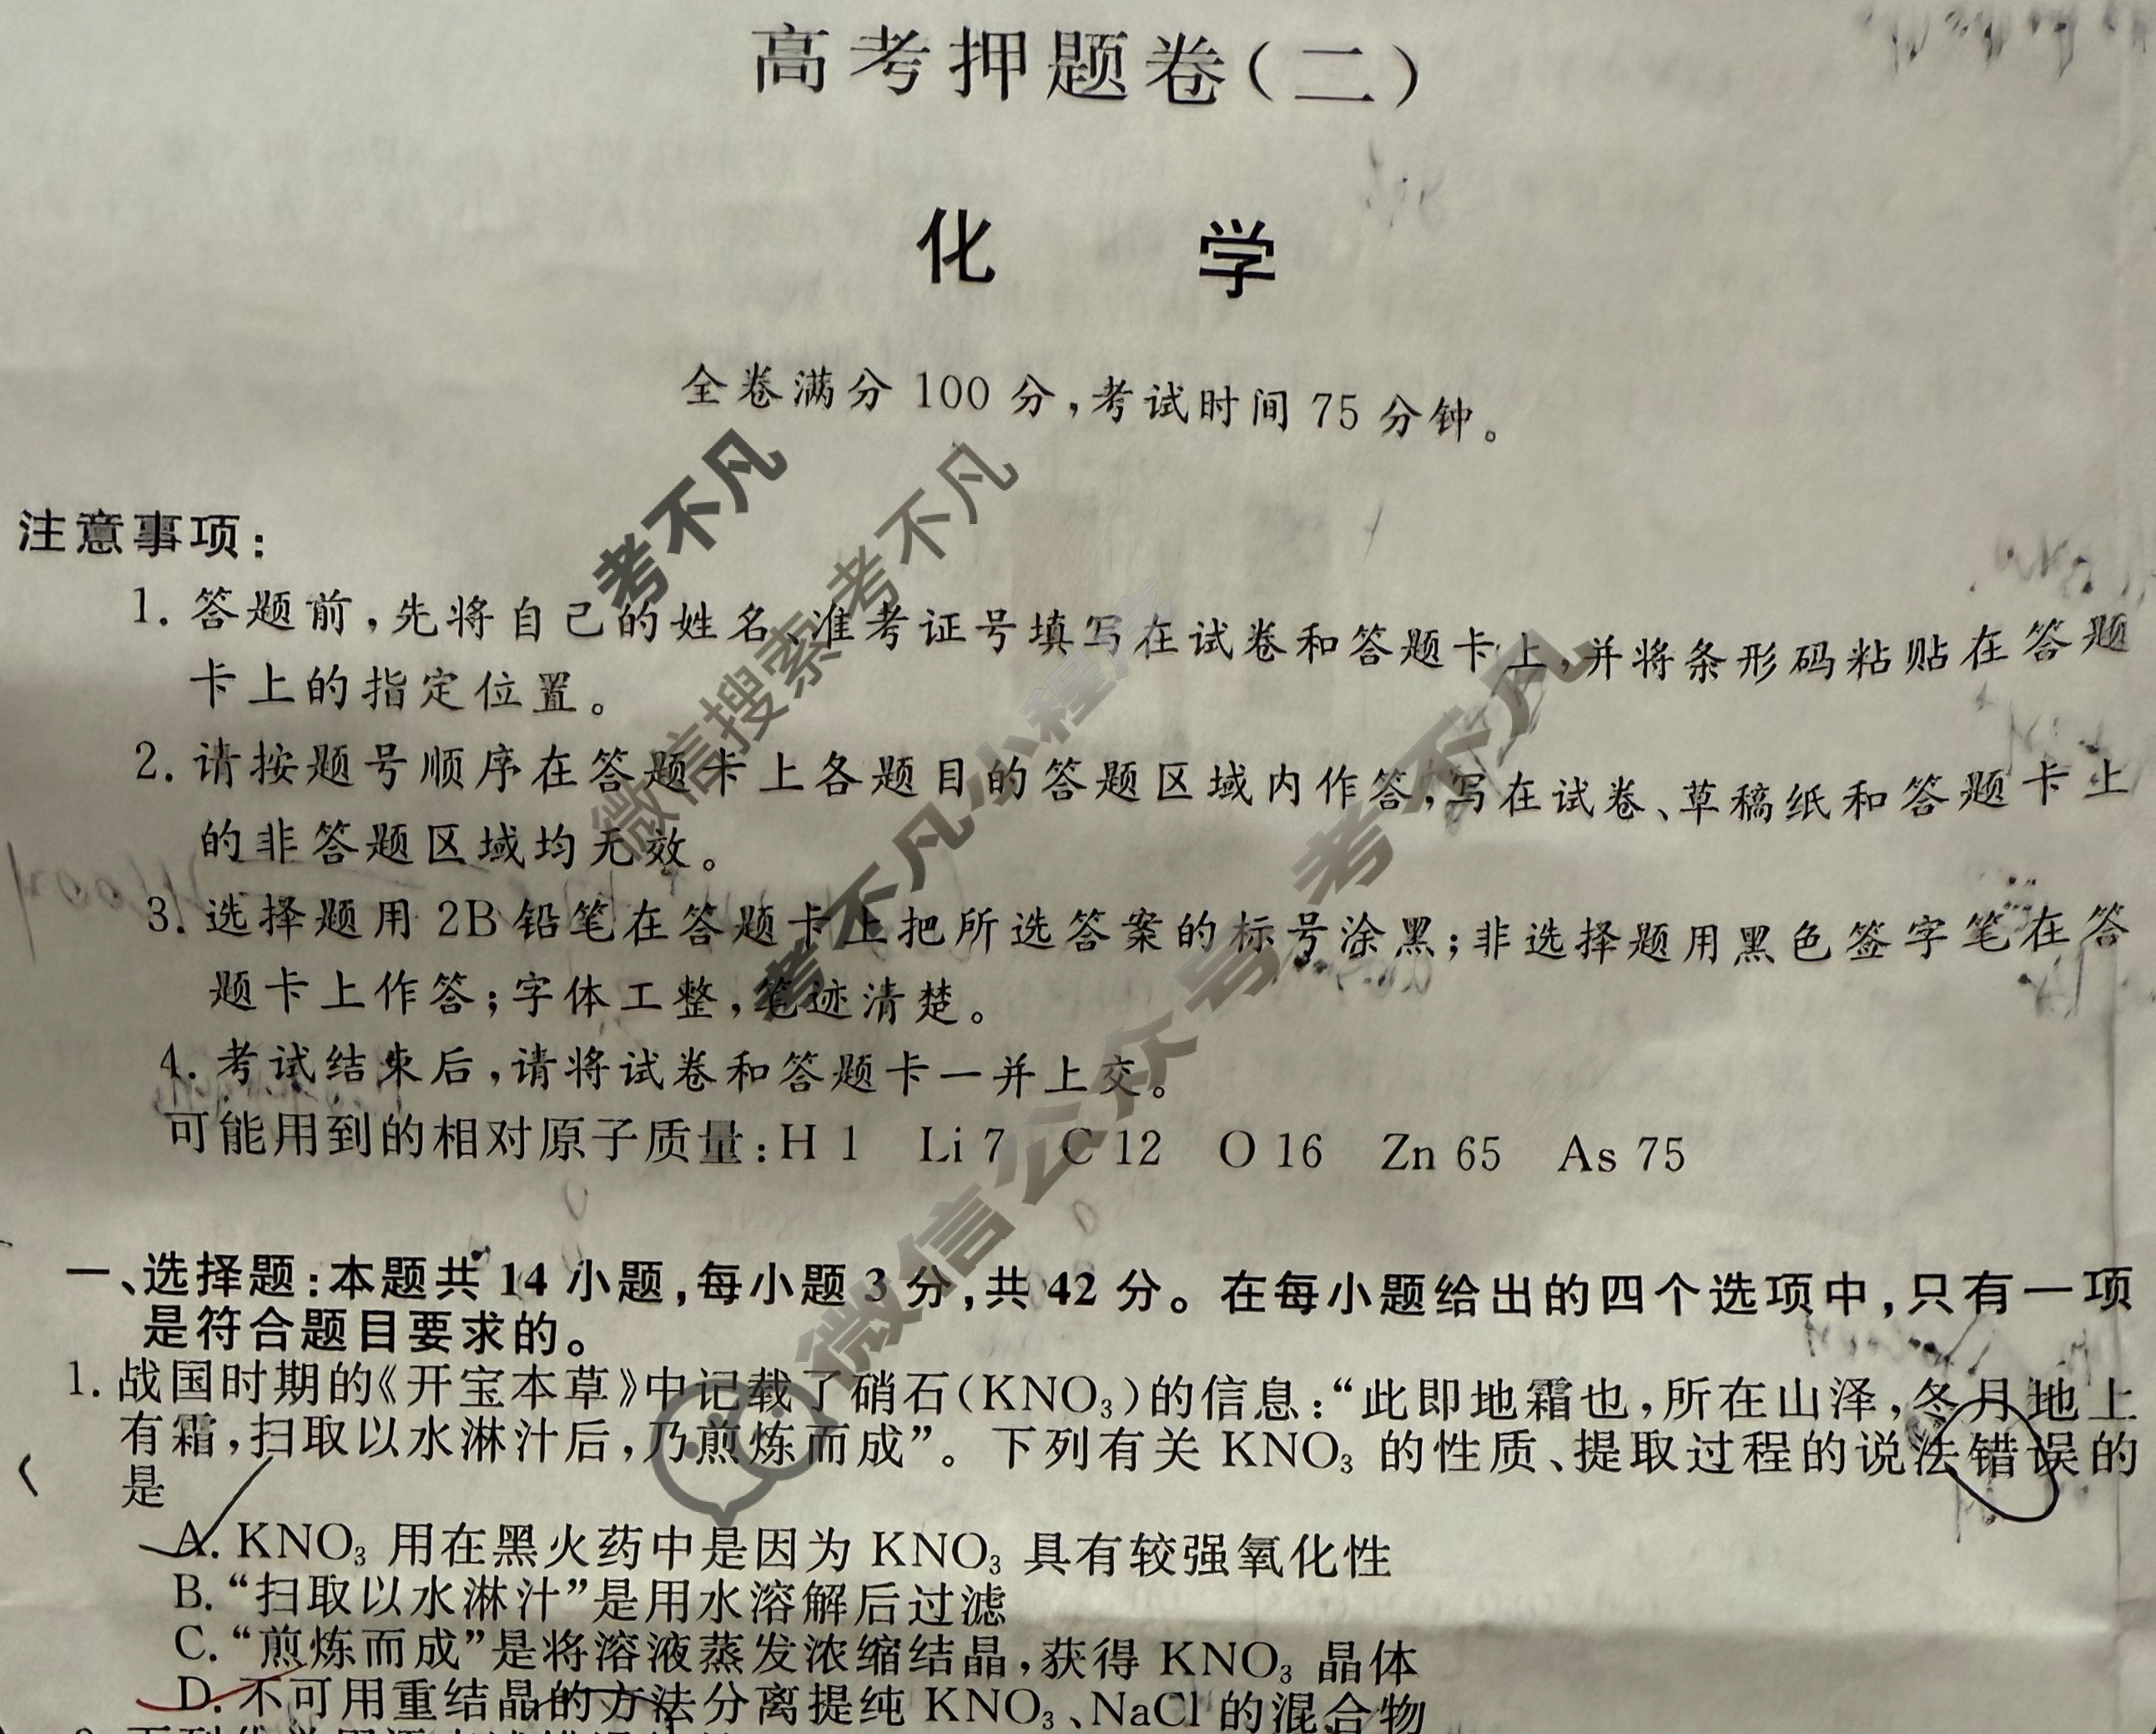 高考押题卷(二)
化 学
全卷满分 100 分,考试时间 75 分钟。
注意事项:
1. 答题前,先将自己的姓名、准考证号填写在试卷和答题卡上,并将条形码粘贴在答题
卡上的指定位置。
2. 请按题号顺序在答题卡上各题目的答题区域内作答,写在试卷、草稿纸和答题卡上
的非答题区域均无效。
3. 选择题用 2B 铅笔在答题卡上把所选答案的标号涂黑;非选择题用黑色签字笔在答
题卡上作答;字体工整,笔迹清楚。
4. 考试结束后,请将试卷和答题卡一并上交。
可能用到的相对原子质量:H 1 Li 7 C 12 O 16 Zn 65 As 75
一、选择题:本题共 14 小题,每小题 3 分,共 42 分。在每小题给出的四个选项中,只有一项
是符合题目要求的。
1. 战国时期的《开宝本草》中记载了硝石(KNO₃)的信息:“此即地霜也,所在山泽,冬月地上
有霜,扫取以水淋汁后,乃煎炼而成”。下列有关 KNO₃ 的性质、提取过程的说法错误的
是
A. KNO₃ 用在黑火药中是因为 KNO₃ 具有较强氧化性
B. “扫取以水淋汁”是用水溶解后过滤
C. “煎炼而成”是将溶液蒸发浓缩结晶,获得 KNO₃ 晶体
D. 不可用重结晶的方法分离提纯 KNO₃、NaCl 的混合物
考不凡
微信搜索考不凡
考不凡小程序
微信公众号考不凡